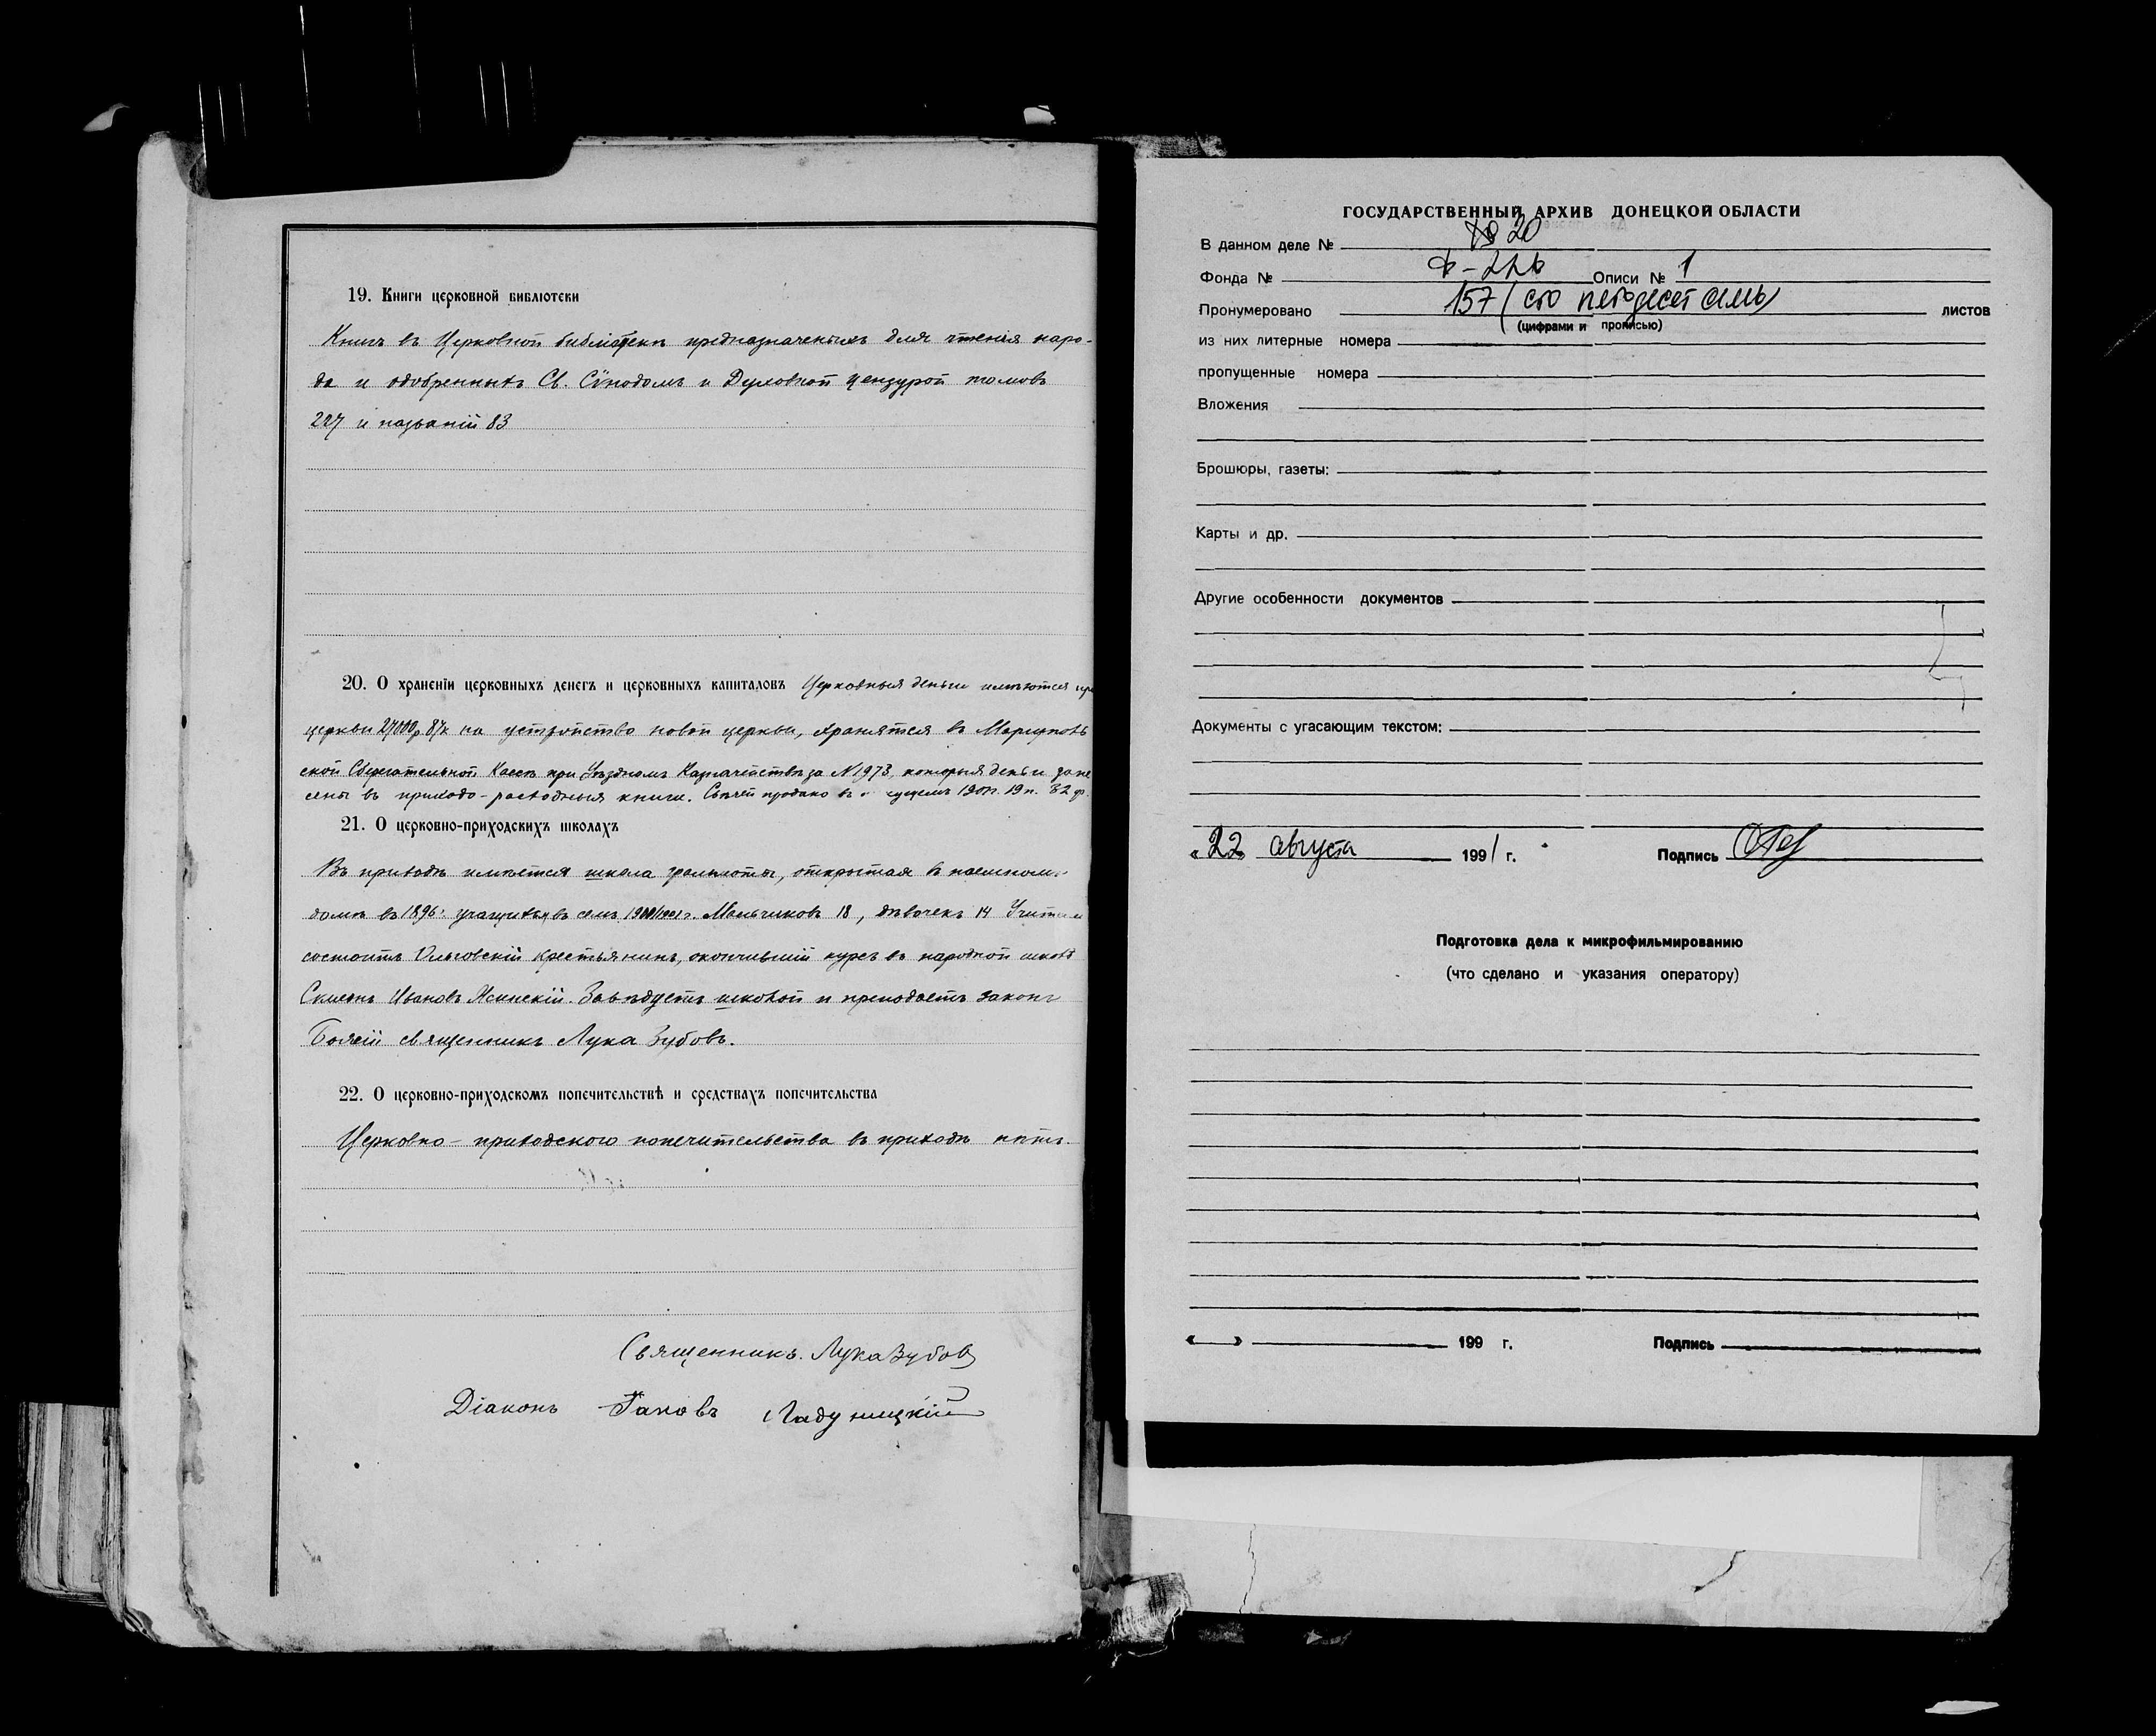 19. Книги церковной библіотеки
Книгъ въ Церковной библіотекѣ предназначенныхъ для чтенія наро-
да и одобренныхъ Св. Сѵнодомъ и Духовной цензурой томовъ
227 и названій 83
20. О храненіи церковныхъ денегъ и церковныхъ капиталовъ Церковныя деньги имѣются при
церкви на устройство новой церкви, хранятся въ Маріуполь
ской Сберегательной Кассѣ при Уѣздномъ Казначействѣ за № 1973, которыя деньги зане
сены въ приходо-расходныя книги. Свѣчей продано въ 19 п. 32 ф.
21. О церковно-приходскихъ школахъ
Въ приходѣ имѣется школа грамоты, открытая въ наемномъ
домѣ въ 1896 г. учащихся въ семъ 1900/1901 г. Мальчиковъ 18, дѣвочекъ 14 Учителемъ
состоитъ крестьянинъ, окончившій курсъ въ народной школѣ
Симеонъ Ивановъ Ясинскій. Завѣдуетъ школой и преподаетъ законъ
Божій священникъ Лука Зубовъ.
22. О церковно-приходскомъ попечительствѣ и средствахъ попечительства
Церковно-приходского попечительства въ приходѣ нѣтъ.
Священникъ. Лука Зубовъ
Діаконъ Іаковъ Ладуницкій
ГОСУДАРСТВЕННЫЙ АРХИВ ДОНЕЦКОЙ ОБЛАСТИ
В данном деле № 20
Фонда № Описи № 1
Пронумеровано 157 (сто пятьдесят семь) листов
(цифрами и прописью)
из них литерные номера
пропущенные номера
Вложения
Брошюры, газеты:
Карты и др.
Другие особенности документов
Документы с угасающим текстом:
«22» августа 1991 г. Подпись
Подготовка дела к микрофильмированию
(что сделано и указания оператору)
« » 199 г. Подпись